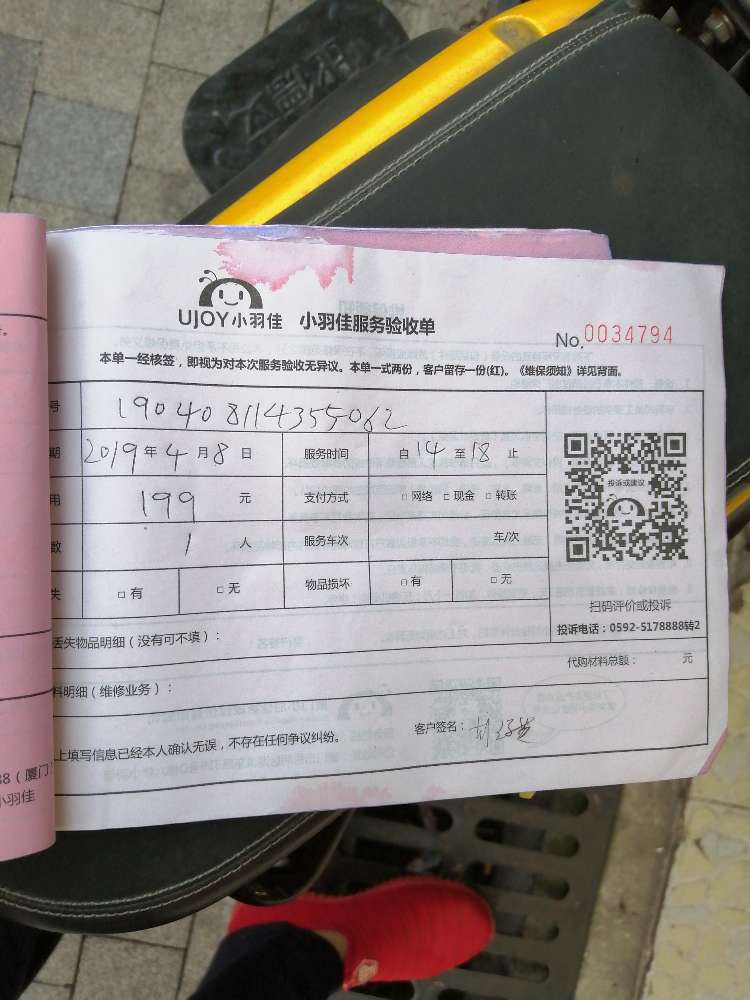 UJOY小羽佳 小羽佳服务验收单
No.0034794
本单一经核签，即视为对本次服务验收无异议。本单一式两份，客户留存一份(红)。《维保须知》详见背面。
号 190408114355062
期 2019年4月8日 服务时间 自14至18止
用 199 元 支付方式 □网络 □现金 □转账
数 1 人 服务车次 车/次
失 □有 □无 物品损坏 □有 □无
投诉或建议
扫码评价或投诉
投诉电话：0592-5178888转2
丢失物品明细（没有可不填）：
代购材料总额： 元
料明细（维修业务）：
上填写信息已经本人确认无误，不存在任何争议纠纷。
客户签名：
88（厦门
小羽佳